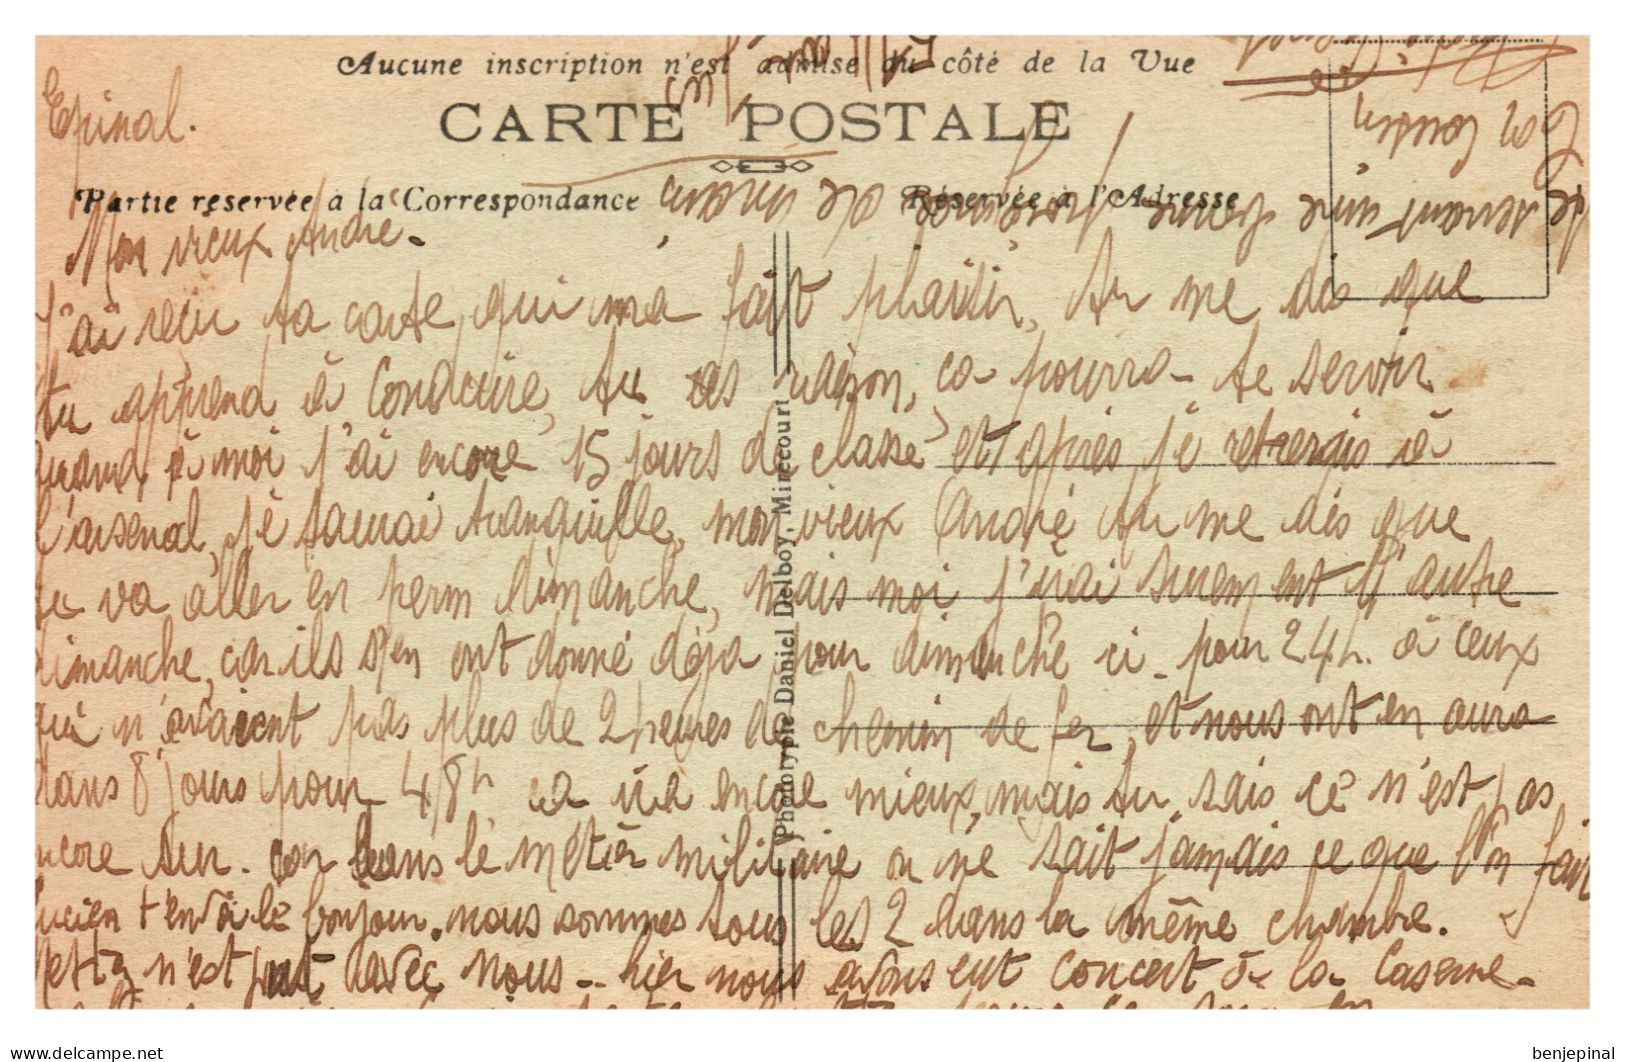 Aucune inscription n'est admise du côté de la Vue
CARTE POSTALE
Partie reservée à la Correspondance
Réservée à l'Adresse
Epinal.
Mon vieux André.
J'ai reçu ta carte qui m'a fait plaisir, tu me dis que
tu apprend à conduire, tu as raison, ça pourra te servir
quand à moi j'ai encore 15 jours de classe et après je
à
l'arsenal, je tranquille, mon vieux André tu me dis que
tu va aller en perm dimanche, mais moi j'irai surement l'autre
dimanche, car ils s'en ont donné déja pour dimanche ci pour 24h. à ceux
qui n'avaient pas plus de 2 heures de chemin de fer, et nous ont en aura
dans 8 jours pour 48h ça ira encore mieux, mais tu sais ce n'est pas
encore sur. car dans le métier militaire on ne sait jamais ce que l'on fait
Lucien t'envoie le bonjour. nous sommes tous les 2 dans la même chambre.
n'est pas avec nous - hier nous avons eut concert à la Caserne.
Phototypie Daniel Delboy, Mirecourt
de
une bonne poignée de mains
Ton cousin
benjepinal